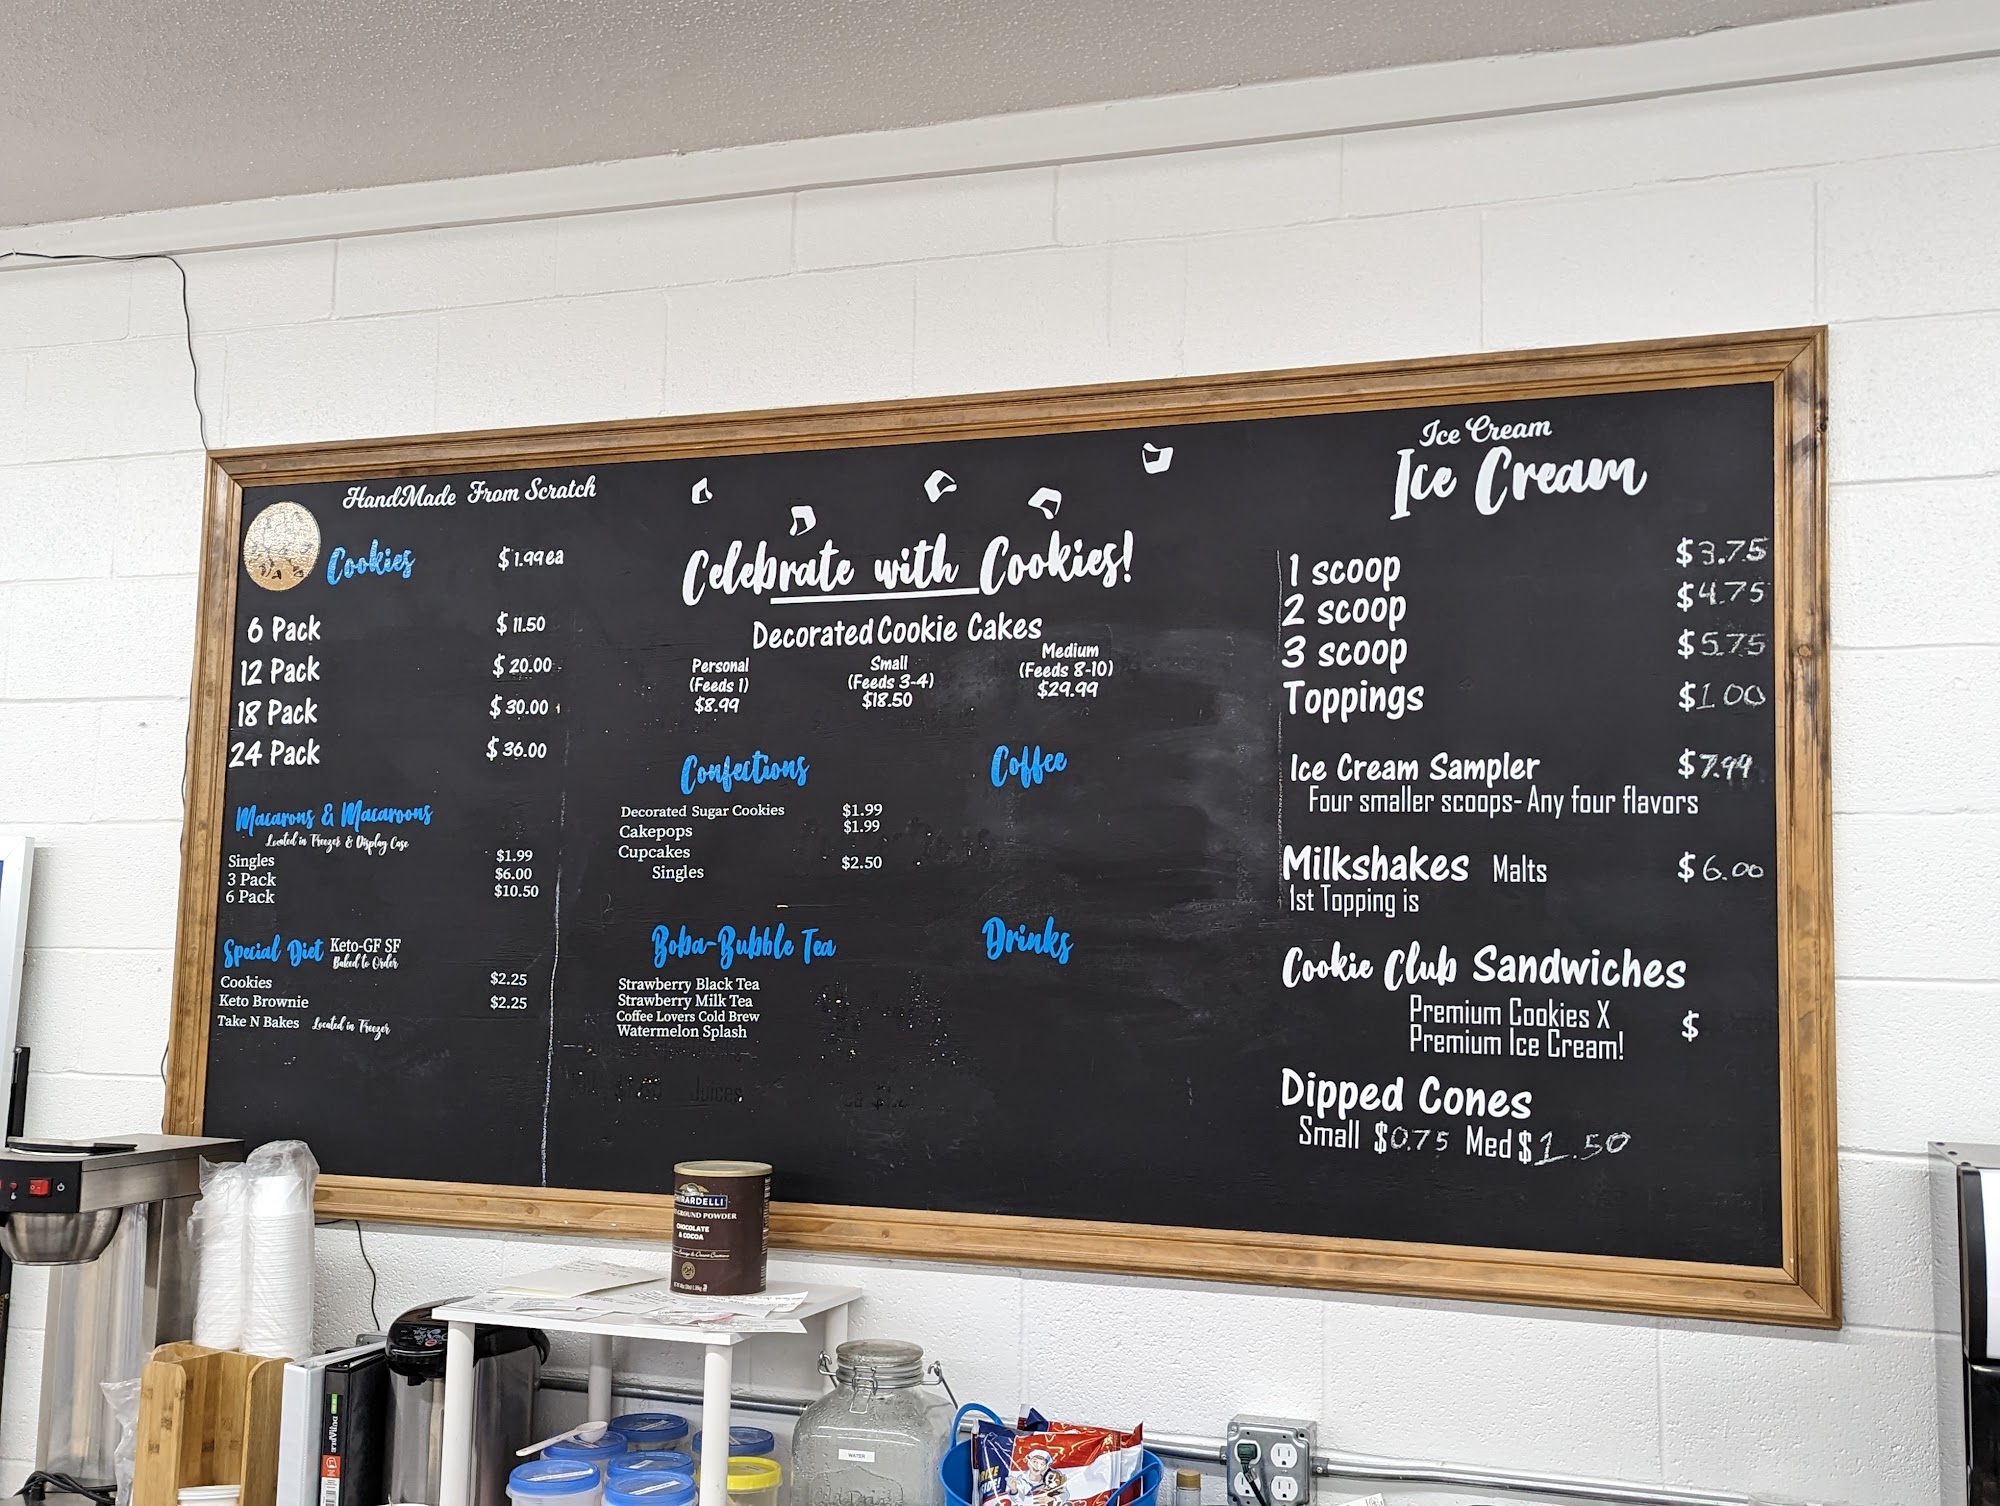 HandMade From Scratch
Cookies $1.99 ea
6 Pack $11.50
12 Pack $20.00
18 Pack $30.00
24 Pack $36.00
Macarons & Macaroons
Located in Freezer & Display Case
Singles $1.99
3 Pack $6.00
6 Pack $10.50
Special Diet Keto-GF SF
Baked to Order
Cookies $2.25
Keto Brownie $2.25
Take N Bakes Located in Freezer
Celebrate with Cookies!
Decorated Cookie Cakes
Personal
(Feeds 1)
$8.99
Small
(Feeds 3-4)
$18.50
Medium
(Feeds 8-10)
$29.99
Confections
Decorated Sugar Cookies $1.99
Cakepops $1.99
Cupcakes
Singles $2.50
Coffee
Boba-Bubble Tea
Strawberry Black Tea
Strawberry Milk Tea
Coffee Lovers Cold Brew
Watermelon Splash
Juices
Drinks
Ice Cream
Ice Cream
1 scoop $3.75
2 scoop $4.75
3 scoop $5.75
Toppings $1.00
Ice Cream Sampler $7.99
Four smaller scoops- Any four flavors
Milkshakes Malts $6.00
1st Topping is
Cookie Club Sandwiches
Premium Cookies X
Premium Ice Cream! $
Dipped Cones
Small $0.75 Med $1.50
GROUND POWDER
CHOCOLATE
& COCOA
WATER